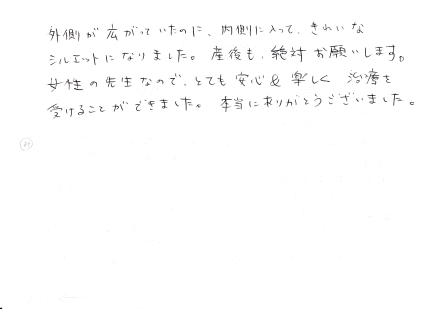 外側が広がっていたのに、内側に入って、きれいな
シルエットになりました。産後も、絶対お願いします。
女性の先生なので、とても安心&楽しく治療を
受けることができました。本当にありがとうございました。